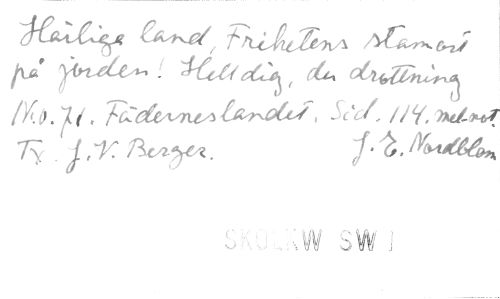 Härliga land, Frihetens stamort
på jorden! Hell dig, du drottning
No. 71. Fäderneslandet. Sid. 114. mel-not.
Tx. J. N. Berger. J. E. Nordblom
SKOLKW SW I